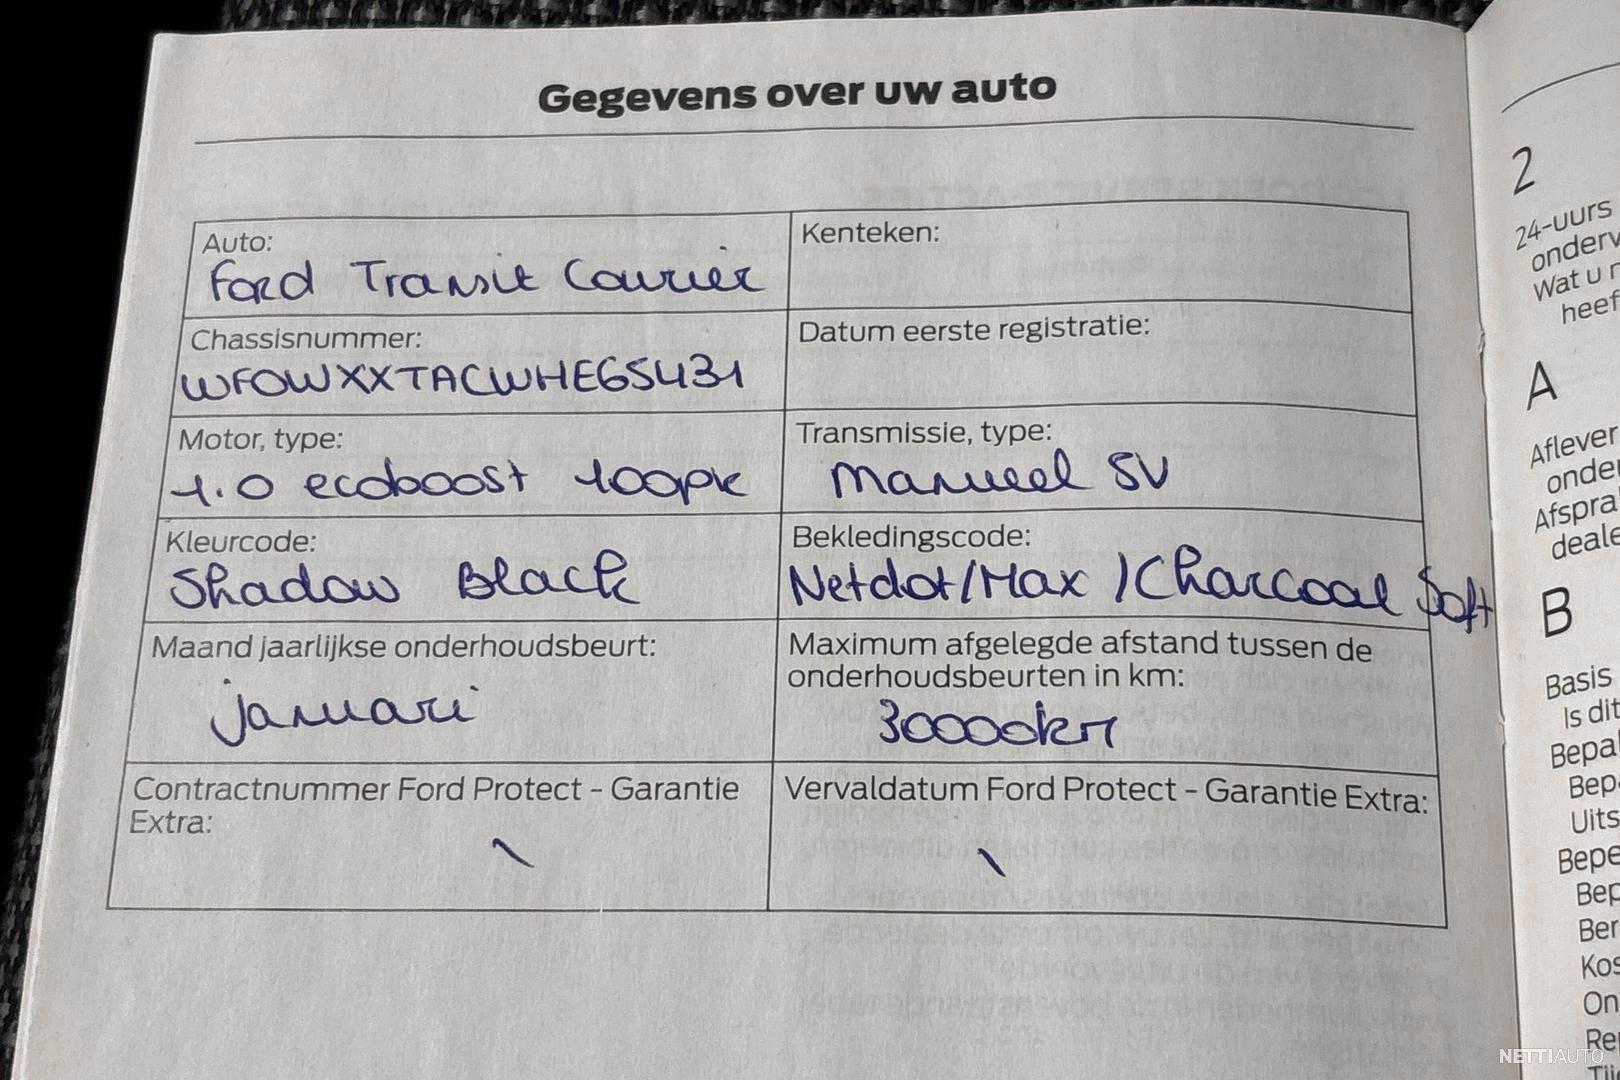 Gegevens over uw auto
Auto:
Ford Transit Courier
Kenteken:
Chassisnummer:
WFOWXXTACWHE65431
Datum eerste registratie:
Motor, type:
1.0 ecoboost 100pk
Transmissie, type:
manueel 5V
Kleurcode:
Shadow Black
Bekledingscode:
Netdot/Max /Charcoal Soft
Maand jaarlijkse onderhoudsbeurt:
januari
Maximum afgelegde afstand tussen de
onderhoudsbeurten in km:
30000km
Contractnummer Ford Protect - Garantie
Extra:
\
Vervaldatum Ford Protect - Garantie Extra:
\
2
24-uurs
Wat u
A
B
Basis
Is dit
NETTIAUTO